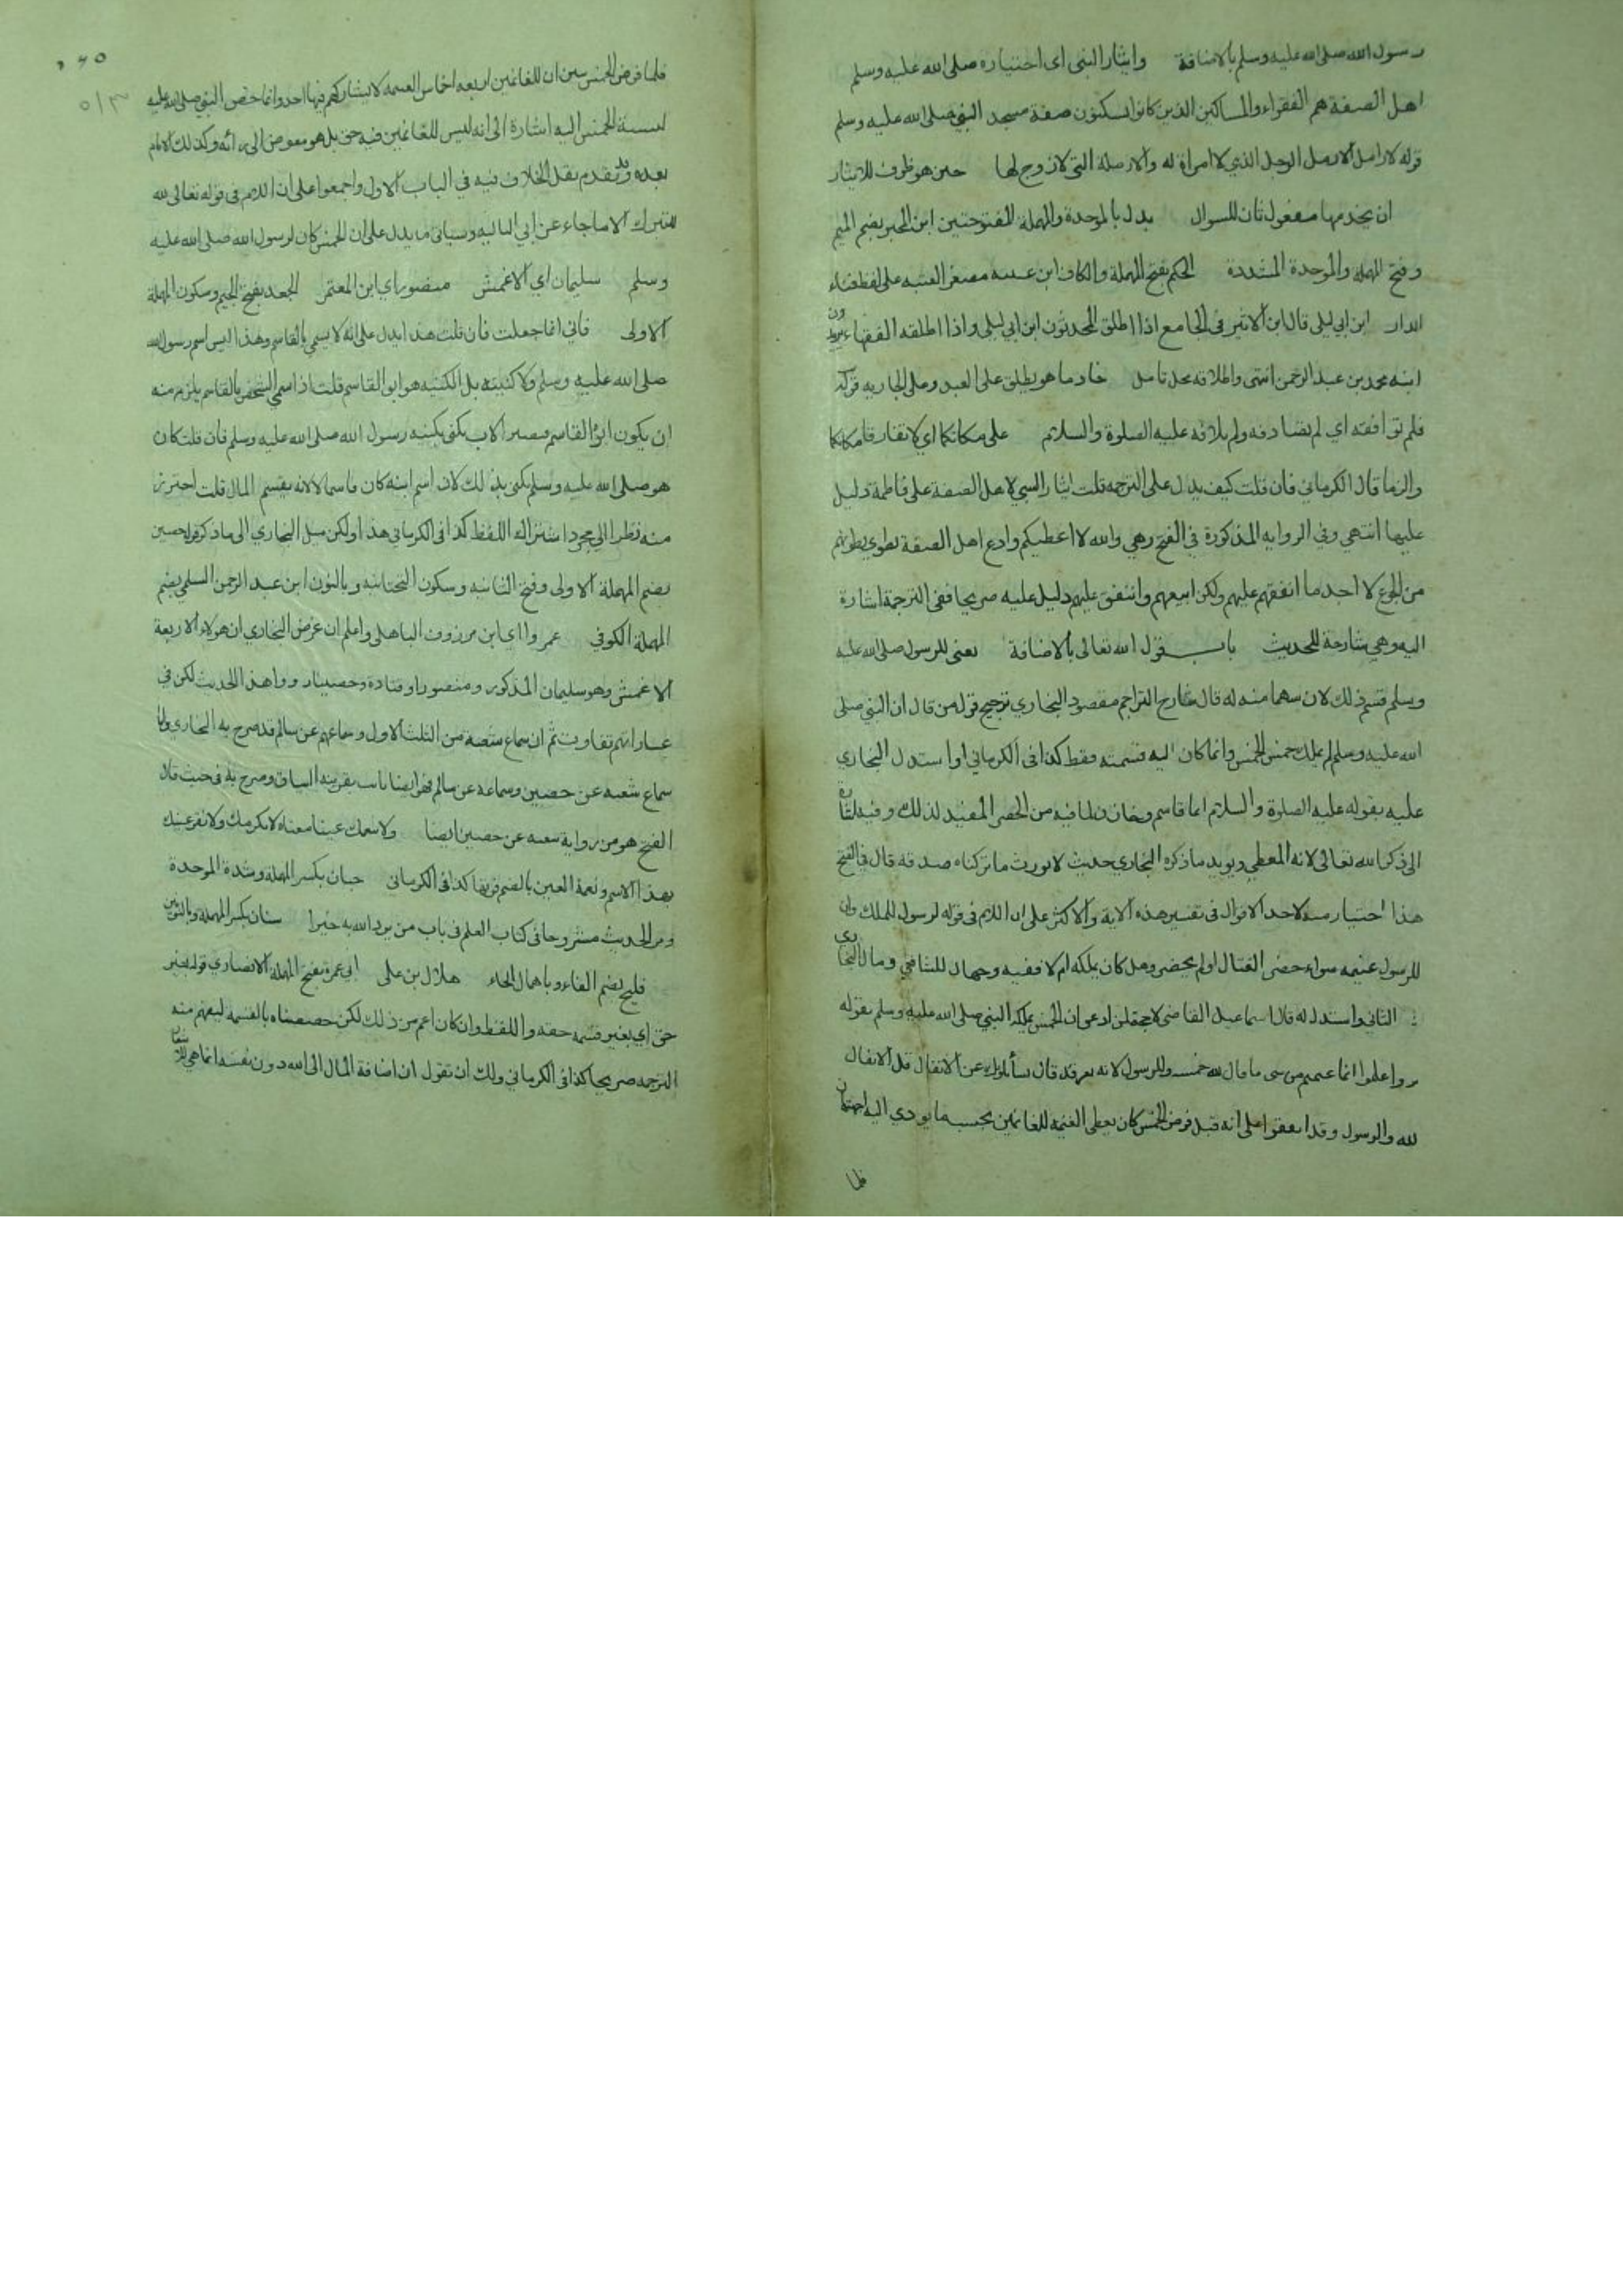 رسول الله صلى الله عليه وسلم بالاضافة وايثار النبى اى اختياره صلى الله عليه وسلم
اهل الصفة هم الفقراء والمساكين الذين كانوا يسكنون صفة مسجد النبي صلى الله عليه وسلم
قوله لارامل الارمل الرجل الذي لا امراة له والارملة التى لا زوج لها حين هو ظرف للايثار
ان يخدمها مفعول ثان للسوال بدل بالموحدة والمهملة المفتوحتين ابن المحبر بضم الميم
وفتح المهملة والموحدة المشددة الحكم بفتح المهملة والكاف ابن عتيبه مصغر العتبه على لفظ فناء
الدار ابن ابي ليلى قال ابن الاثير فى الجامع اذا اطلق المحدثون ابن ابي ليلى واذا اطلقه الفقهاء يريدون
ابنه محمد بن عبد الرحمن انتهى واطلاقه محل تامل خادما هو يطلق على العبد وعلى الجاريه قوله
فلم توافقه اي لم تصادفه ولم تلاقه عليه الصلوة والسلام على مكانكما اي لا تفارقا مكانكما
والزما قال الكرماني فان قلت كيف يدل على الترجمه قلت ايثار النبي لاهل الصفة على فاطمة دليل
عليها انتهى وفي الروايه المذكورة في الفتح وهي والله لا اعطيكم وادع اهل الصفة تطوي بطونهم
من الجوع لا اجد ما انفقهم عليهم ولكن ابيعهم وانفق عليهم دليل عليه صريحا ففى الترجمة اشارة
اليه وهي شارحة للحديث باب قول الله تعالى بالاضافة يعنى للرسول صلى الله عليه
وسلم قسم ذلك لان سهما منه له قال شارح التراجم مقصود البخاري ترجيح قول من قال ان النبي صلى
الله عليه وسلم لم يملك خمس الخمس وانما كان اليه قسمته فقط كذا فى الكرماني او استدل البخاري
عليه بقوله عليه الصلوة والسلام انما قاسم وخازن لما فيه من الحصر المفيد لذلك وفيه اشارة
الى ذكر الله تعالى لانه المعطي ويويد ما ذكره البخاري حديث لا نورث ما تركناه صدقه قال في الفتح
هذا اختيار منه لاحد الاقوال فى تفسير هذه الاية والاكثر على ان اللام فى قوله لرسول للملك وان
للرسول غنيمه سواء حضر القتال او لم يحضر وهل كان يملكه ام لا ففيه وجهان للشافعي ومال البخاري
الثانى واستدل له قال اسماعيل القاضى لا حجة لمن ادعى ان الخمس يملكه النبي صلى الله عليه وسلم بقوله
واعلموا انما غنمتم من شى ما قال لله خمسه وللرسول لانه يعرفه قال يسألونك عن الانفال قل الانفال
لله والرسول وقد اتفقوا على انه قبل فرض الخمس كان يعطى الغنيمه للغانمين بحسب ما يودي اليه اجتهاده
فلما
فلما فرض الخمس بين ان للغانمين اربعه اخماس الغنيمه لا يشاركهم فيها احد وانما خص النبي صلى الله عليه
بنسبة الخمس اليه اشارة الى انه ليس للغانمين فيه حق بل هو مفوض الى رائه وكذلك الامام
بعده وقد تقدم نقل الخلاف فيه في الباب الاول واجمعوا على ان اللام فى قوله تعالى لله
للتبرك الا ما جاء عن ابي العاليه وسياتى ما يدل على ان الخمس كان لرسول الله صلى الله عليه
وسلم سليمان اي الاعمش منصور اي ابن المعتمر الجعد بفتح الجيم وسكون المهملة
الاولى فانى انما جعلت فان قلت هذا يدل على انه لا يسمي بالقاسم وهذا ليس اسم رسول الله
صلى الله عليه وسلم ولا كنيته بل الكنيه هو ابو القاسم قلت اذ اسمي الشخص بالقاسم يلزم منه
ان يكون ابوه ابو القاسم فيصير الاب يكنى بكنيه رسول الله صلى الله عليه وسلم فان قلت كان
هو صلى الله عليه وسلم يكنى بذلك لان اسم ابنه كان قاسما لا لانه يقسم المال قلت احترز
منه نظرا الى مجرد اشتراك اللفظ كذا فى الكرماني هذا ولكن ميل البخاري الى ما ذكر قوله حصين
بضم المهملة الاولى وفتح الثانيه وسكون التحتانيه وبالنون ابن عبد الرحمن السلمي بضم
المهملة الكوفي عمرو اي ابن مرزوق الباهلى واعلم ان غرض البخاري ان هولاء الاربعة
الاعمش وهو سليمان المذكور ومنصور او قتادة وحصينا رووا هذا الحديث لكن في
عباراتهم تفاوت ثم ان سماع شعبه من الثلث الاول وسماعهم عن سالم قد صرح به البخاري واما
سماع شعبه عن حصين وسماعه عن سالم فهو ايضا ثابت بقرينه السياق وصرح به فى حيث قال
الفتح هو من رواية شعبه عن حصين ايضا ولا ننعمك عينا معناه لا نكرمك ولا نقر عينك
بهذا الاسم ونعمة العين بالضم قرتها كذا فى الكرمانى حبان بكسر المهملة وشدة الموحدة
ومر الحديث مشروحا فى كتاب العلم فى باب من يرد الله به خيرا سنان بكسر المهملة وبالنونين
فليح بضم الفاء وباهمال الحاء هلال بن على ابي عمرة بفتح المهملة الانصاري قوله بغير
حق اي بغير قسمه حقه واللفظ وان كان اعم من ذلك لكن خصصناه بالقسمة ليفهم منه
الترجمه صريحا كذا فى الكرماني ولك ان تقول ان اضافة المال الى الله دون نفسه انما هي للاشعار